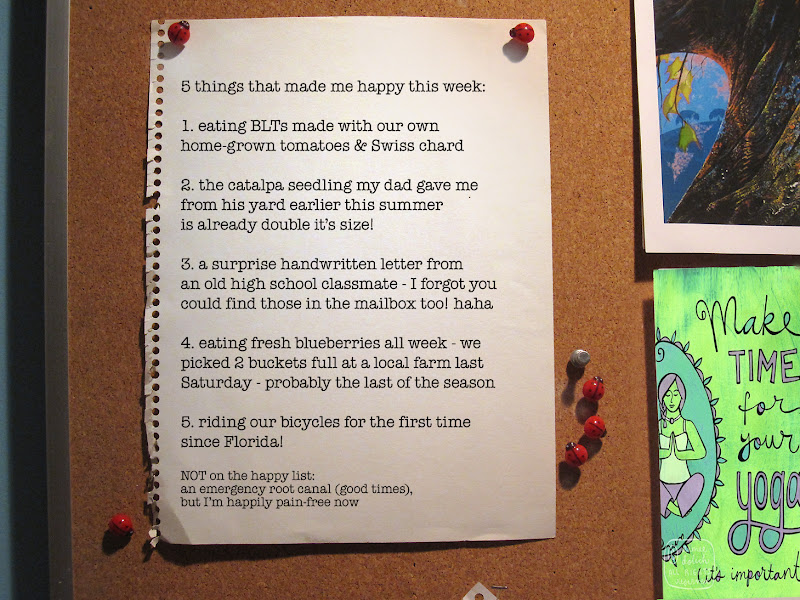 5 things that made me happy this week:
1. eating BLTs made with our own
home-grown tomatoes & Swiss chard
2. the catalpa seedling my dad gave me
from his yard earlier this summer
is already double it's size!
3. a surprise handwritten letter from
an old high school classmate - I forgot you
could find those in the mailbox too! haha
4. eating fresh blueberries all week - we
picked 2 buckets full at a local farm last
Saturday - probably the last of the season
5. riding our bicycles for the first time
since Florida!
NOT on the happy list:
an emergency root canal (good times),
but I'm happily pain-free now
Make
TIME
for
your
yoga
(it's important